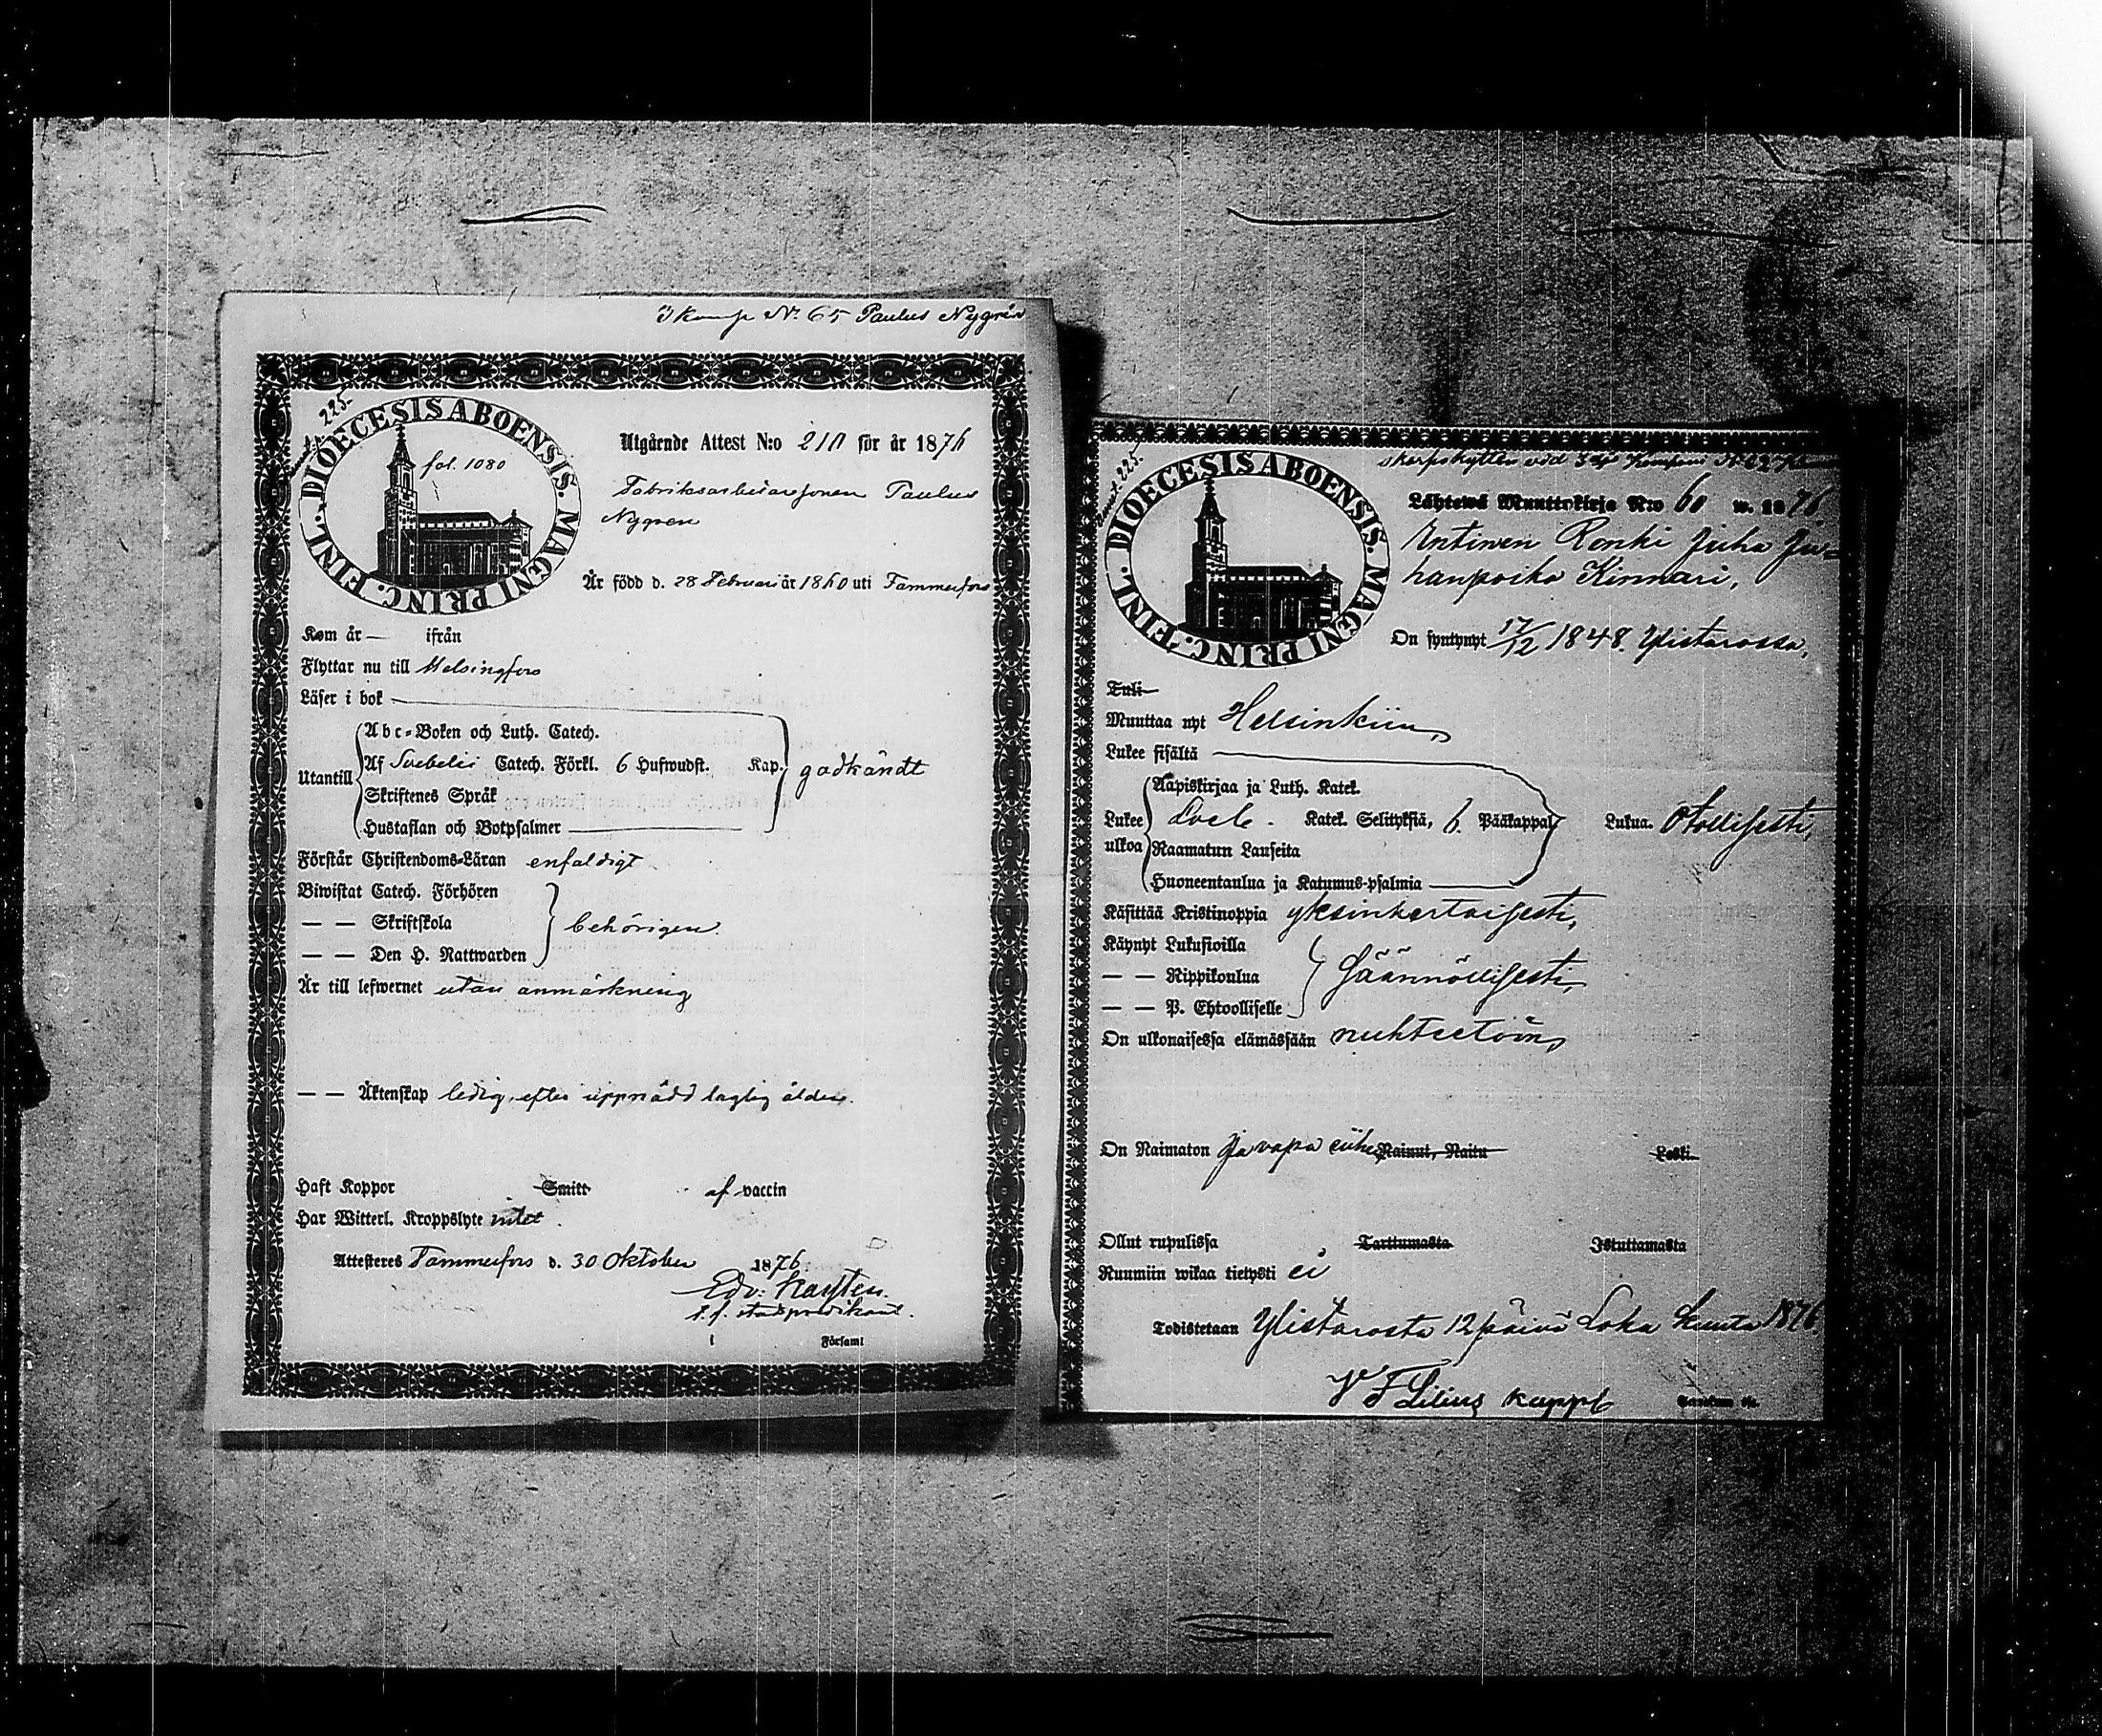 3 komp No. 65 Paulus Nygrén
225.
DIOECESIS ABOENSIS. MAGNI PRINC. FINL.
fol. 1080
Utgårnde Attest N:o 210 för år 1876
Fabriksarbetaresonen Paulus
Nygren
Är född d. 28 Februari år 1860 uti Tammerfors
Kom år — ifrån
Flyttar nu till Helsingfors
Läser i bok
Abc-Boken och Luth. Catech.
Utantill Af Svebelii Catech. Förkl. 6 Hufwudst. Kap. godkändt
Skriftenes Språk
Hustaflan och Botpsalmer
Förstår Christendoms-Läran enfaldigt
Biwistat Catech. Förhören
— — Skriftskola behörigen
— — Den H. Nattwarden
Är till lefwernet utan anmärkning
— — Äktenskap ledig, efter uppnådd laglig ålder.
Haft Koppor Smitt af vaccin
Har Witterl. Kroppslyte intet.
Attesteres Tammerfors d. 30 Oktober 1876.
Edv: Karsten.
t.f. stadspredikant.
i Församl
skarpskytten vid 3dje Kompani N 62
225.
DIOECESIS ABOENSIS. MAGNI PRINC. FINL.
Lähtewä Muuttokirja N:o 60 w. 1876.
Entinen Renki Juha Ju-
hanpoika Kinnari,
On syntynyt 17/12 1848. Ylistarossa,
Tuli
Muuttaa nyt Helsinkiin,
Lukee sisältä
Aapiskirjaa ja Luth. Katek.
Lukee Sveb. Katek. Selityksiä, 6. Pääkappal. Lukua. Otollisesti,
ulkoa Raamatun Lauseita
Huoneentaulua ja Katumus-psalmia
Käsittää Kristinoppia yksinkertaisesti,
Käynyt Lukusioilla
— — Rippikoulua Säännöllisesti,
— — P. Ehtoolliselle
On ulkonaisessa elämässään nuhteetoin,
On Naimaton ja vapa Nainut, Naitu Leski.
Ollut rupulissa Tarttumasta Istuttamasta
Ruumiin wikaa tietysti ei
Todistetaan Ylistarosta 12 päivä Loka kuuta 1876.
V F Lilius kappl